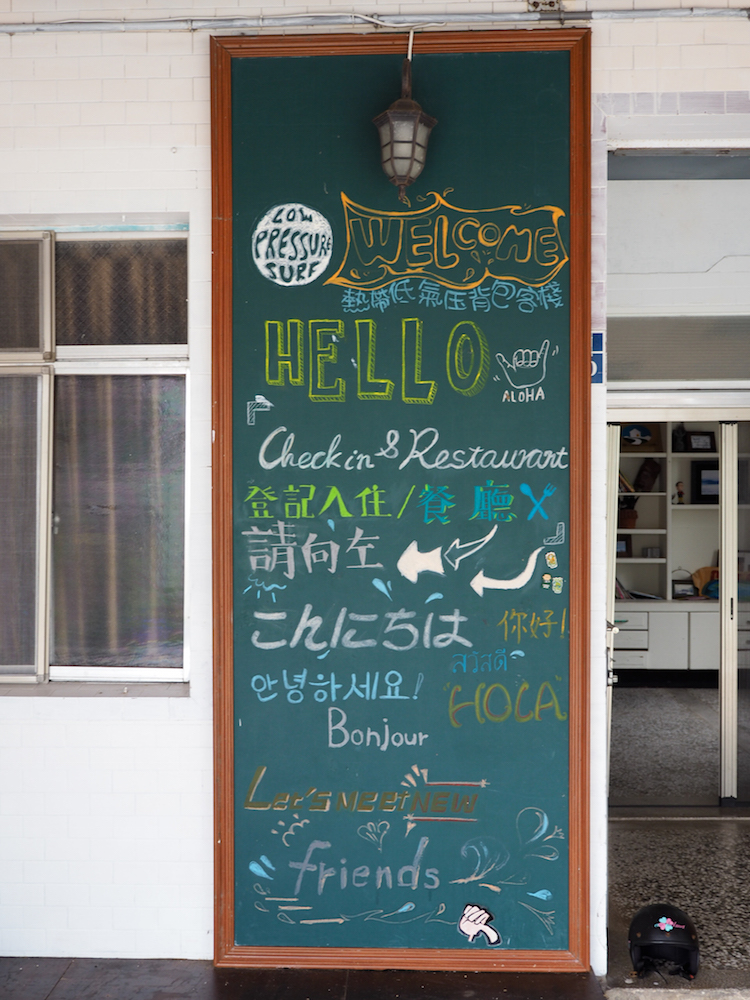 LOW
PRESSURE
SURF
WELCOME
熱帶低氣压背包客棧
HELLO
ALOHA
Check in & Restawart
登記入住/餐廳
請向左
こんにちは
你好!
สวัสดี
안녕하세요!
HOLA
Bonjour
Let's MEET NEW
friends